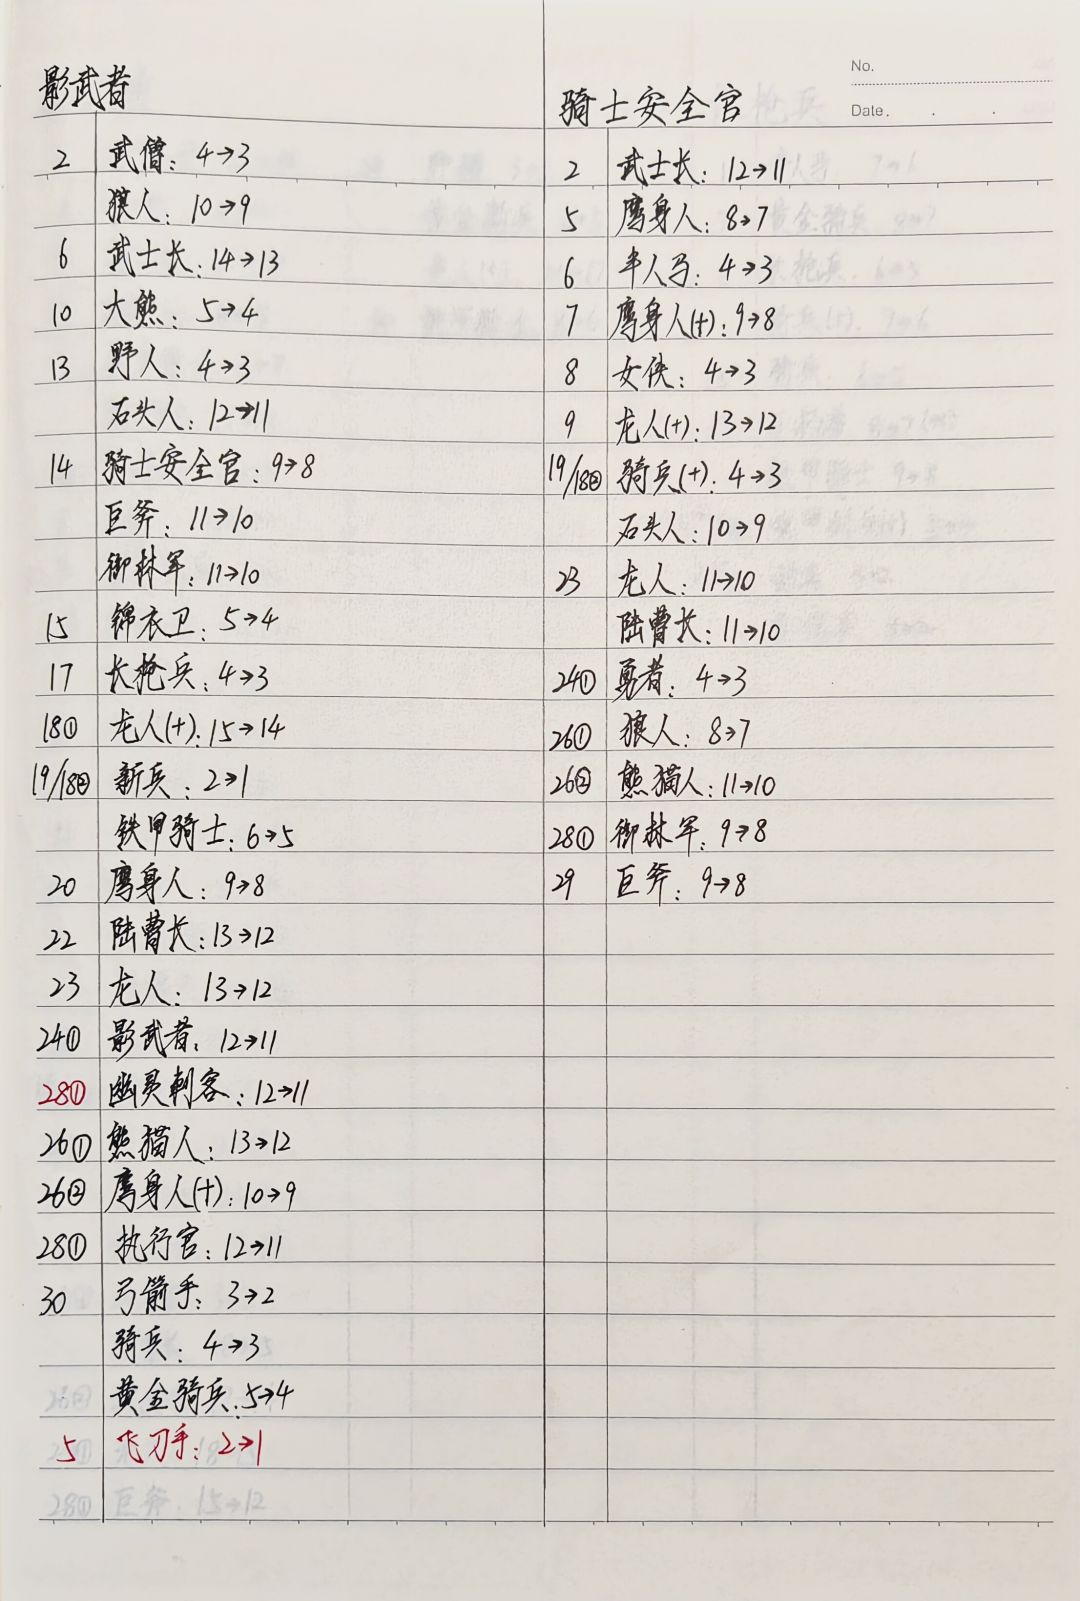 影武者
2 武僧：4→3
狼人：10→9
6 武士长：14→13
10 大熊：5→4
13 野人：4→3
石头人：12→11
14 骑士安全官：9→8
巨斧：11→10
御林军：11→10
15 锦衣卫：5→4
17 长枪兵：4→3
18① 龙人(+)：15→14
19/18② 新兵：2→1
铁甲骑士：6→5
20 鹰身人：9→8
22 陆曹长：13→12
23 龙人：13→12
24① 影武者：12→11
28① 幽灵刺客：12→11
26① 熊猫人：13→12
26② 鹰身人(+)：10→9
28① 执行官：12→11
30 弓箭手：3→2
骑兵：4→3
黄金骑兵：5→4
5 飞刀手：2→1
No.
Date.
骑士安全官
2 武士长：12→11
5 鹰身人：8→7
6 半人马：4→3
7 鹰身人(+)：9→8
8 女侠：4→3
9 龙人(+)：13→12
19/18② 骑兵(+)：4→3
石头人：10→9
23 龙人：11→10
陆曹长：11→10
24① 勇者：4→3
26① 狼人：8→7
26② 熊猫人：11→10
28① 御林军：9→8
29 巨斧：9→8